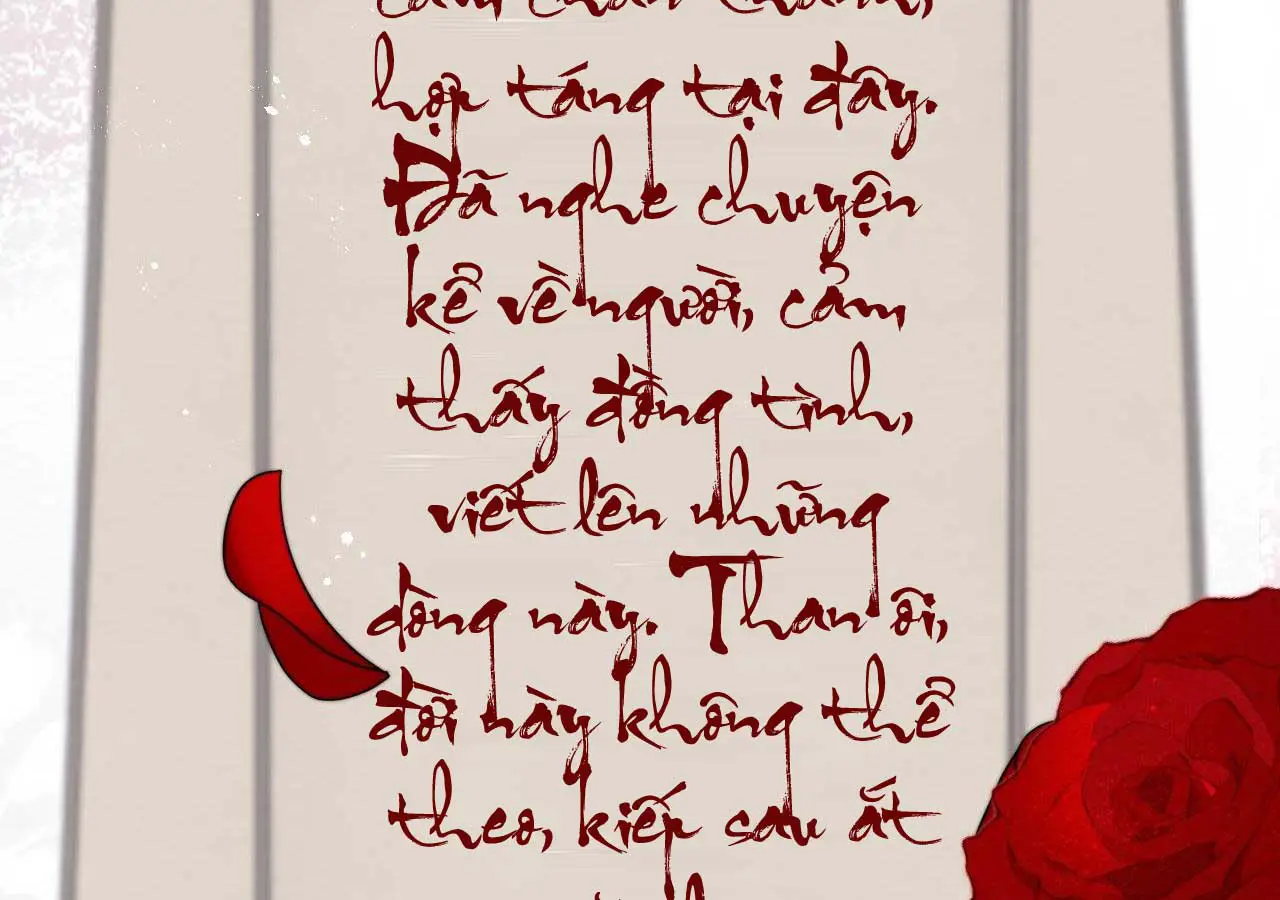 hợp táng tại đây.
Đã nghe chuyện
kể về người, cảm
thấy đồng tình,
viết lên những
dòng này. Than ôi,
đời này không thể
theo, kiếp sau ắt